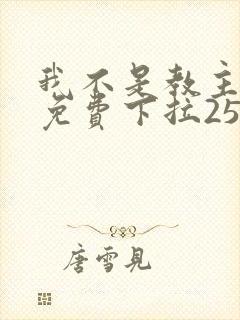 我不是教主
免費下拉25
唐雪見